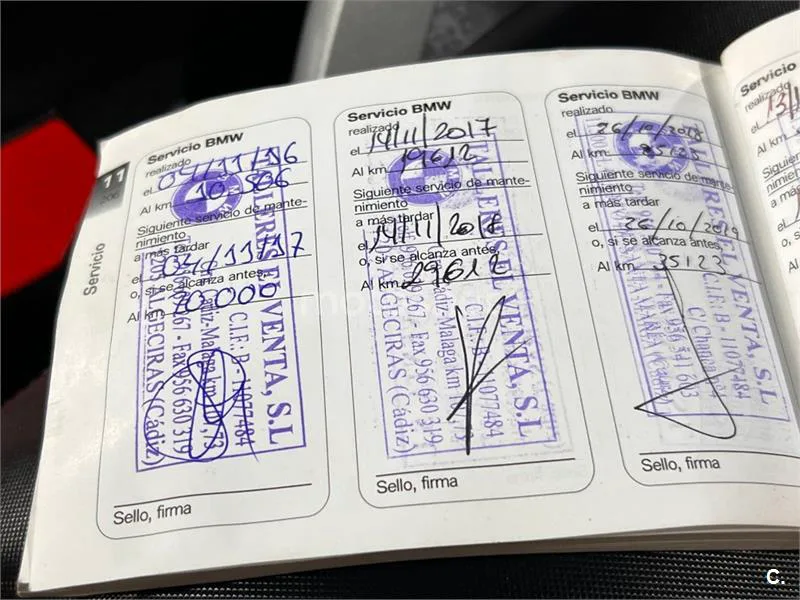 11
200
Servicio
Servicio BMW
realizado
el 04/11/16
Al km. 10.506
Siguiente servicio de mante-
nimiento
a más tardar
el 04/11/17
o, si se alcanza antes,
Al km 20.000
VENTA, S.L
C.I.F.: B - 11077484
Cádiz-Malaga km
Fax 956 630 319
ALGECIRAS (Cádiz)
Sello, firma
Servicio BMW
realizado
el 14/11/2017
Al km. 19612
Siguiente servicio de mante-
nimiento
a más tardar
el 14/11/2018
o, si se alcanza antes,
Al km. 29612
TALLERES EL VENTA, S.L
C.I.F.: B - 11077484
Cádiz-Malaga km
Fax 956 630 319
ALGECIRAS (Cádiz)
Sello, firma
Servicio BMW
realizado
el 26/10/2018
Al km. 25123
Siguiente servicio de mante-
nimiento
a más tardar
el 26/10/2019
o, si se alcanza antes,
Al km. 35123
EL VENTA, S.L
C.I.F.: B - 11077484
Sello, firma
Servicio
realizado
el
Al km.
C.